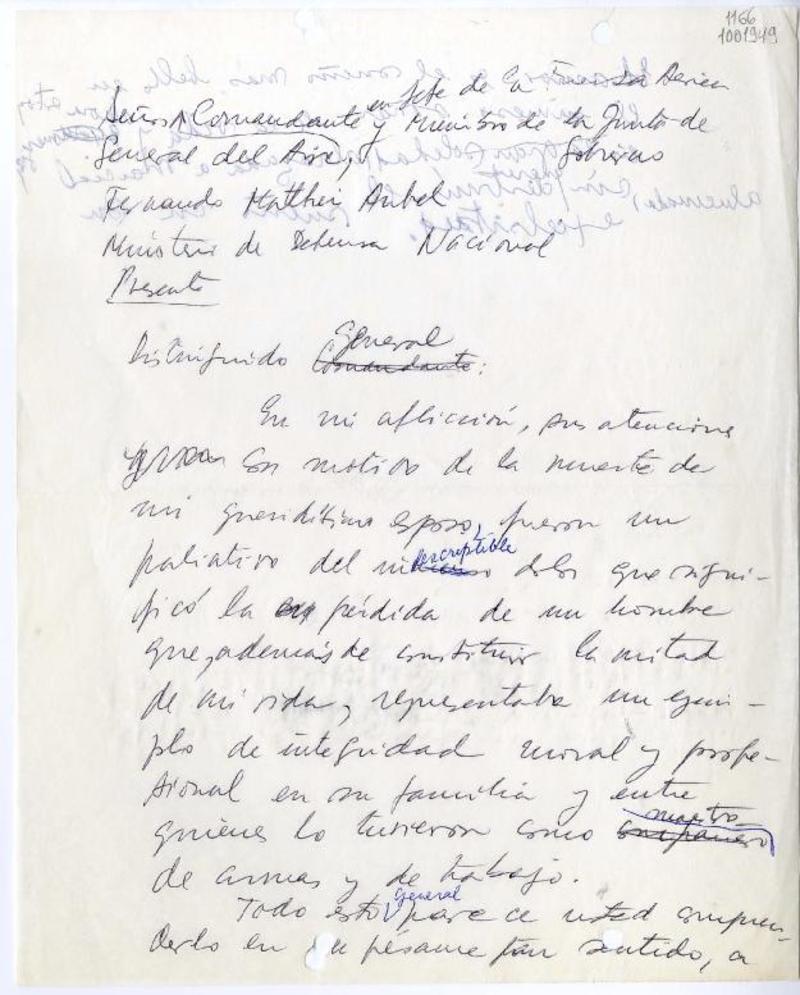 1166
1001949
en Jefe de la Fuerza Aerea
Señor Comandante y Miembro de la Junta de
General del Aire, Gobierno
Fernando Matthei Aubel
Ministerio de Defensa Nacional
Presente
General
Distinguido Comandante:
En mi aflicción, sus atenciones
con motivo de la muerte de
mi queridísimo esposo, fueron un
descriptible
paliativo del in dolor que signi-
ficó la pérdida de un hombre
que, además de constituir la mitad
de mi vida, representaba un ejem-
plo de integridad moral y profe-
sional en su familia y entre
maestro
quienes lo tuvieron como compañero
de armas y de trabajo.
General
Todo esto parece usted compren-
derlo en su pésame tan sentido, a